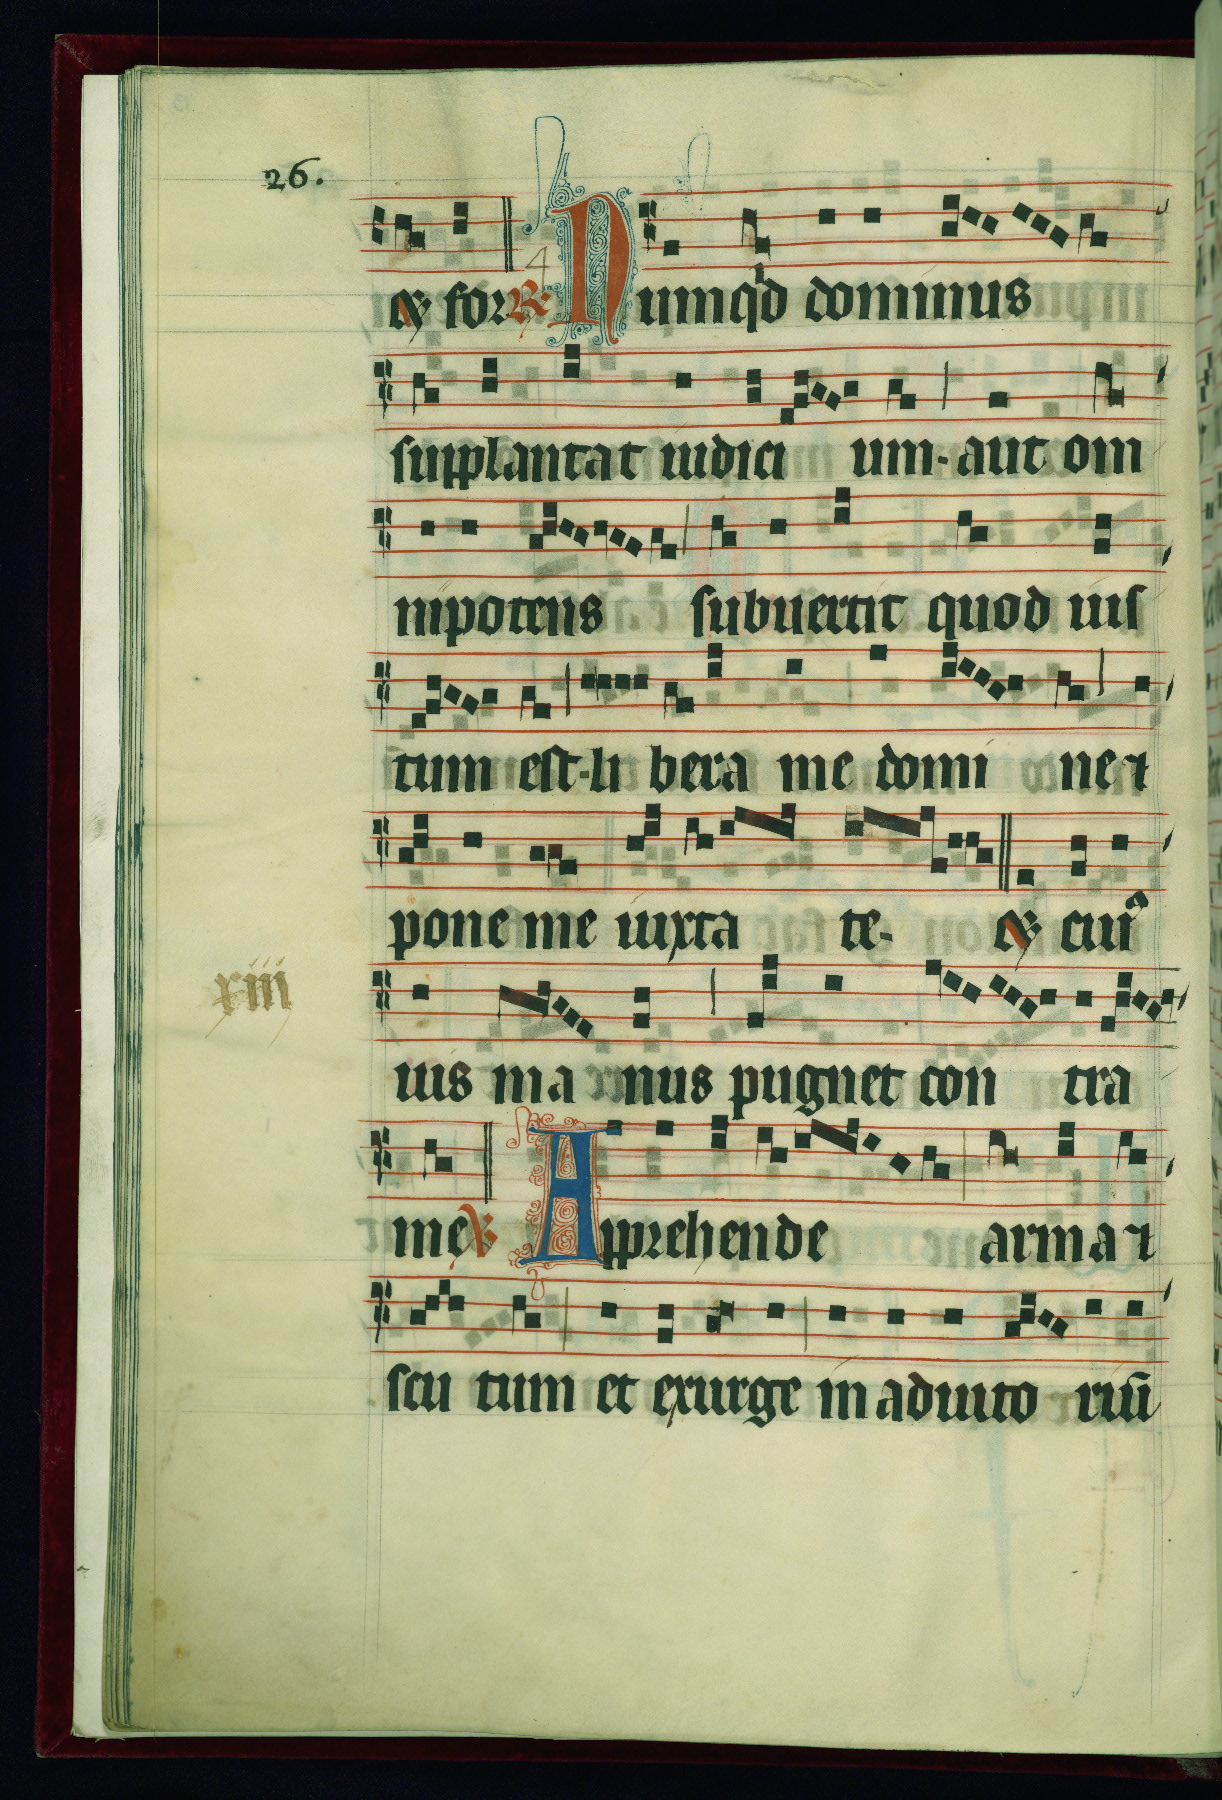 26.
Et for R. 4 Numq'd dominus
supplantat iudici um. aut om
nipotens subuertit quod uis
tum est. li bera me domi ne ⁊
pone me iuxta te. Et cui9
xiii
uis ma nus pugnet con tra
me V. Apprehende arma ⁊
scu tum et exurge in adiuto riū